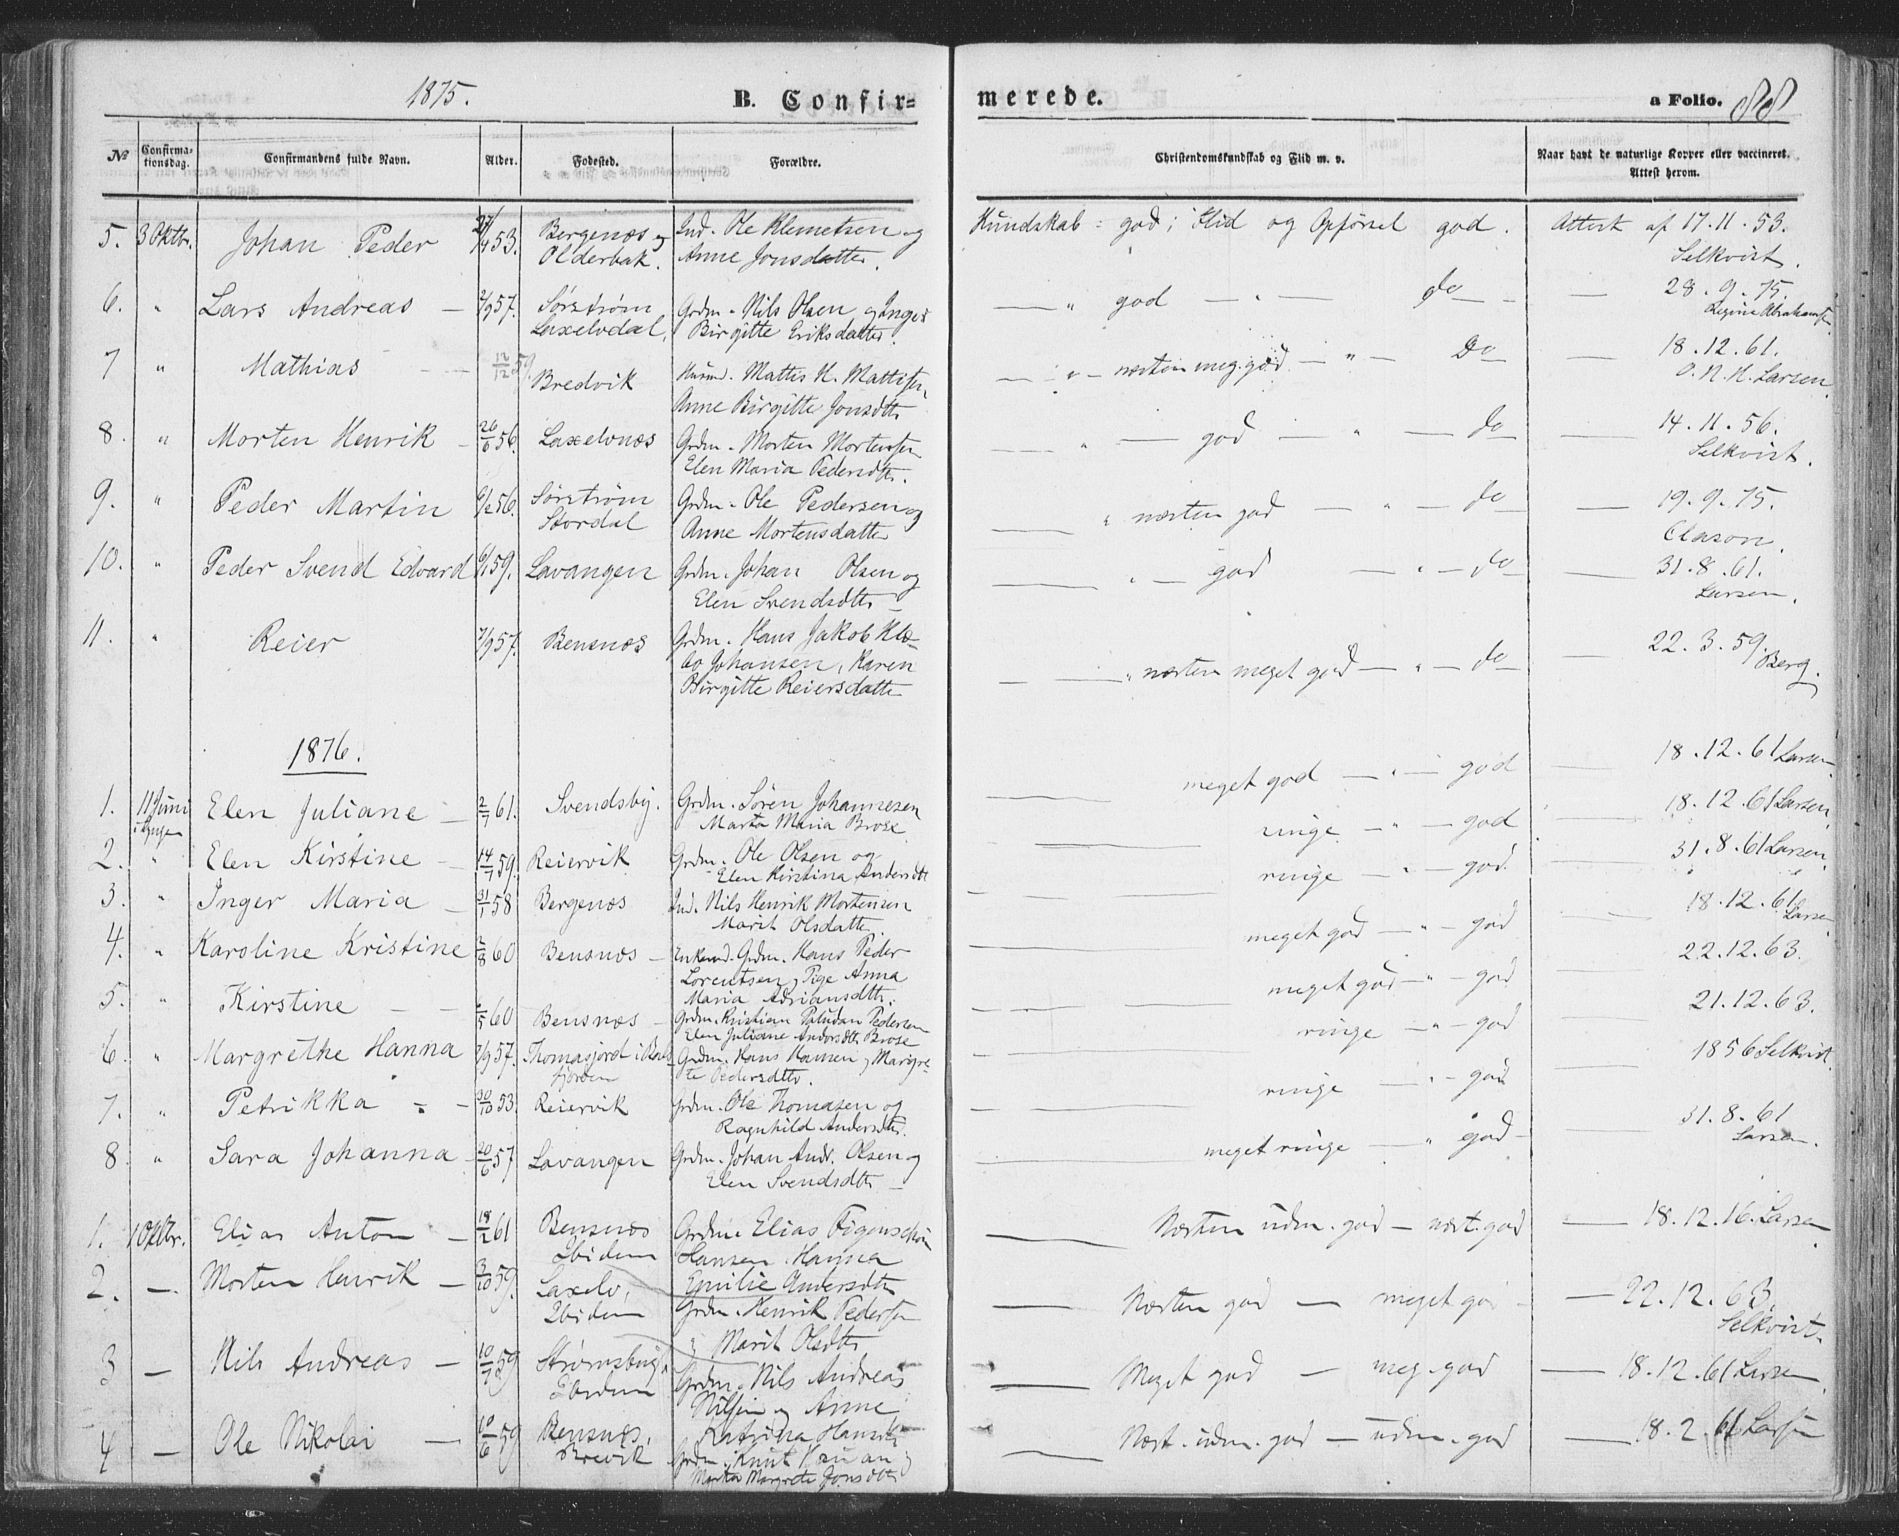 1875.
B. Confir=
merede.
a Folio. 88
No
Confirma-
tionsdag.
Confirmandens fulde Navn.
Alder.
Fødested.
Forældre.
Christendomskundskab og Flid m. v.
Naar havt de naturlige Kopper eller vaccineret.
Attest herom.
5. 3 Oktbr. Johan Peder 53. Bergenæs og Ind. Ole Klemetsen og Kundskab: god; Flid og Opførsel god. Attest af 17.11.53.
Olderbak. Anne Jonsdatter. Selkvist.
6. " Lars Andreas — 2/9 57. Sørstrøm Grdm. Nils Olsen og Inger — " god — " — do — 28.9.75.
Laxelvdal. Birgitte Eriksdatter. Regine Abrahams
7 " Mathias — 12/12 59. Bredvik Husmd. Mattis H. Mattisen — " — næsten meg. god — " — Do — 18.12.61.
Anne Birgitte Jonsdtr O.N.H. Larsen
8. " Morten Henrik — 26/6 56. Laxelvnæs Grdm. Morten Mortensen — " — god — " — do — 14.11.56.
Elen Maria Pedersdtr. Selkvist.
9. " Peder Martin 56. Sørstrøm Grdm. Ole Pedersen og — " næsten god — " — do — 19.9.75.
Stordal Anne Mortensdatter Clason.
10. " Peder Svend Edvard 59. Lavangen Grdm. Johan Olsen og — " — god — " — do — 31.8.61.
Elen Svendsdtr — Larsen.
11. " Reier 7/9 57. Bensnæs Grdm. Hans Jakob Klæ- — " næsten meget god — " — do — 22.3.59.
bo Johansen, Karen Berg.
Birgitte Reiersdatter
1876.
1. 11 Juni Elen Juliane — 2/7 61. Svendsby. Grdm. Søren Johannesen — meget god — " — god — 18.12.61 Larsen
Marta Maria Brose
2. " Elen Kirstine — 14/7 59. Reiervik Grdm. Ole Olsen og — ringe — " — god — 18.12.61 Larsen
Elen Kirstina Andersdtr
3. " Inger Maria — 31/1 58 Bergenæs Ind. Nils Henrik Mortensen — ringe — " — god. — 31.8.61 Larsen
Marit Olsdatter.
4. " Karoline Kristine 2/8 60 Bensnæs — Enkemd. Grdm. Hans Peder — meget god — " — god — 18.12.61 Larsen
Lorentsen, Pige Anna
Maria Adriansdtr.
5. " Kirstine — — 60 Bensnæs — Grdm. Kristian Paludan Pedersen — meget god — " — god — 22.12.63.
Elen Juliane Andersdtr Brose
6. " Margrethe Hanna 7/9 57. Thomasjord i Bals- Grdm. Hans Hansen og Margre- — ringe — " — god — 21.12.63.
fjorden te Pedersdtr.
7. " Petrikka — — 30/10 53. Reiervik Grdm. Ole Thomasen og — ringe — " — god — 1856 Selkvist.
Ragnhild Andersdtr.
8. " Sara Johanna — 20/6 57 Lavangen Grdm. Johan Andr. Olsen og — meget ringe — " god — 31.8.61
Elen Svendsdtr — Larsen.
1. 1 Oktbr. Elias Anton — 18/2 61 Bensnæs Grdm. Elias Figenschou — Næsten udm. god — næst. god — 18.12.16. Larsen
Ibidem Hansen. Hanna
Emilie Andersdtr
2. — Morten Henrik — 3/10 59. Laxelv, Grdm. Henrik Pedersen — Næsten god — meget god — 22.12.63.
Ibidem og Marit Olsdtr Selkvist.
3 — Nils Andreas — 10/7 59 Strømsbugt Grdm. Nils Andreas — Meget god — meg. god — 18.12.61 Larsen
Ibidem Nilsen og Anne
Katrina Hansdtr
4 — Ole Nikolai — 10/6 59 Bensnæs, Grdm. Knut — Næst. udm. god — udm. god — 18.2.61 Larsen
Brevik Marta Margrete Jonsdtr